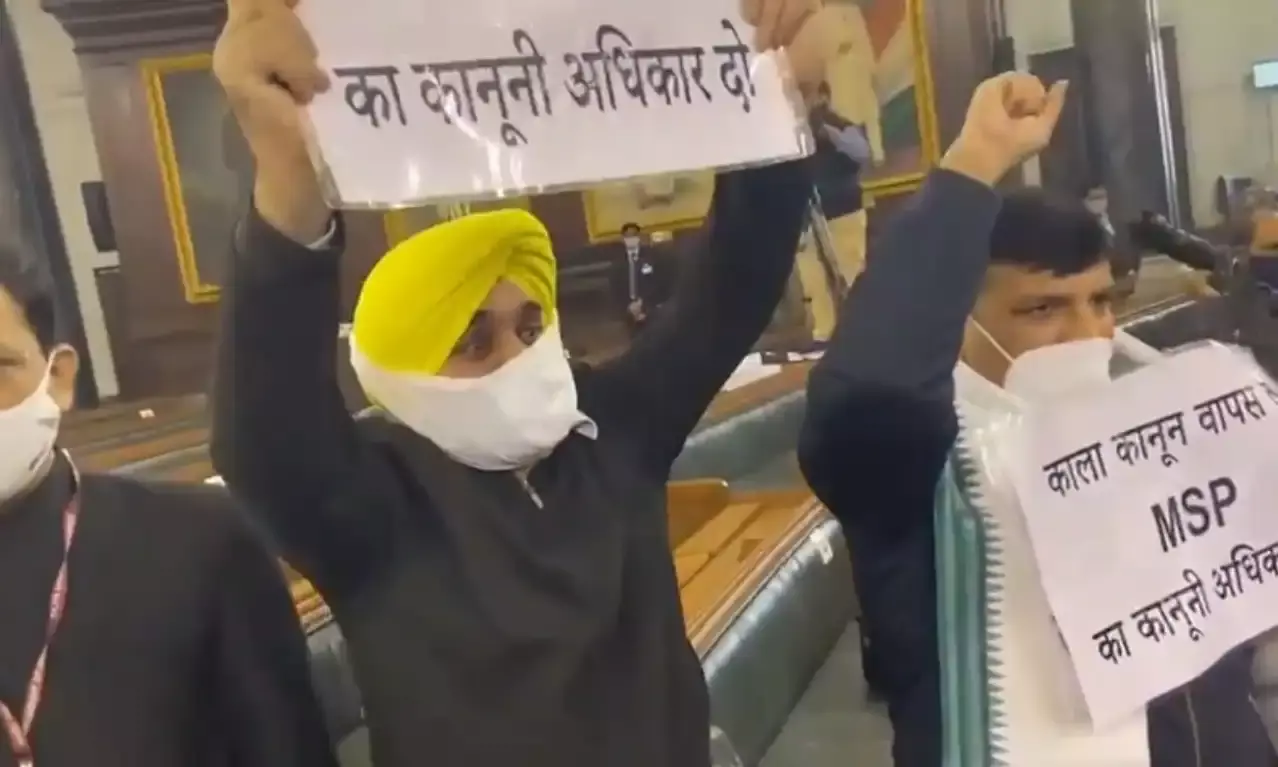 का कानूनी अधिकार दो
काला कानून वापस
MSP
का कानूनी